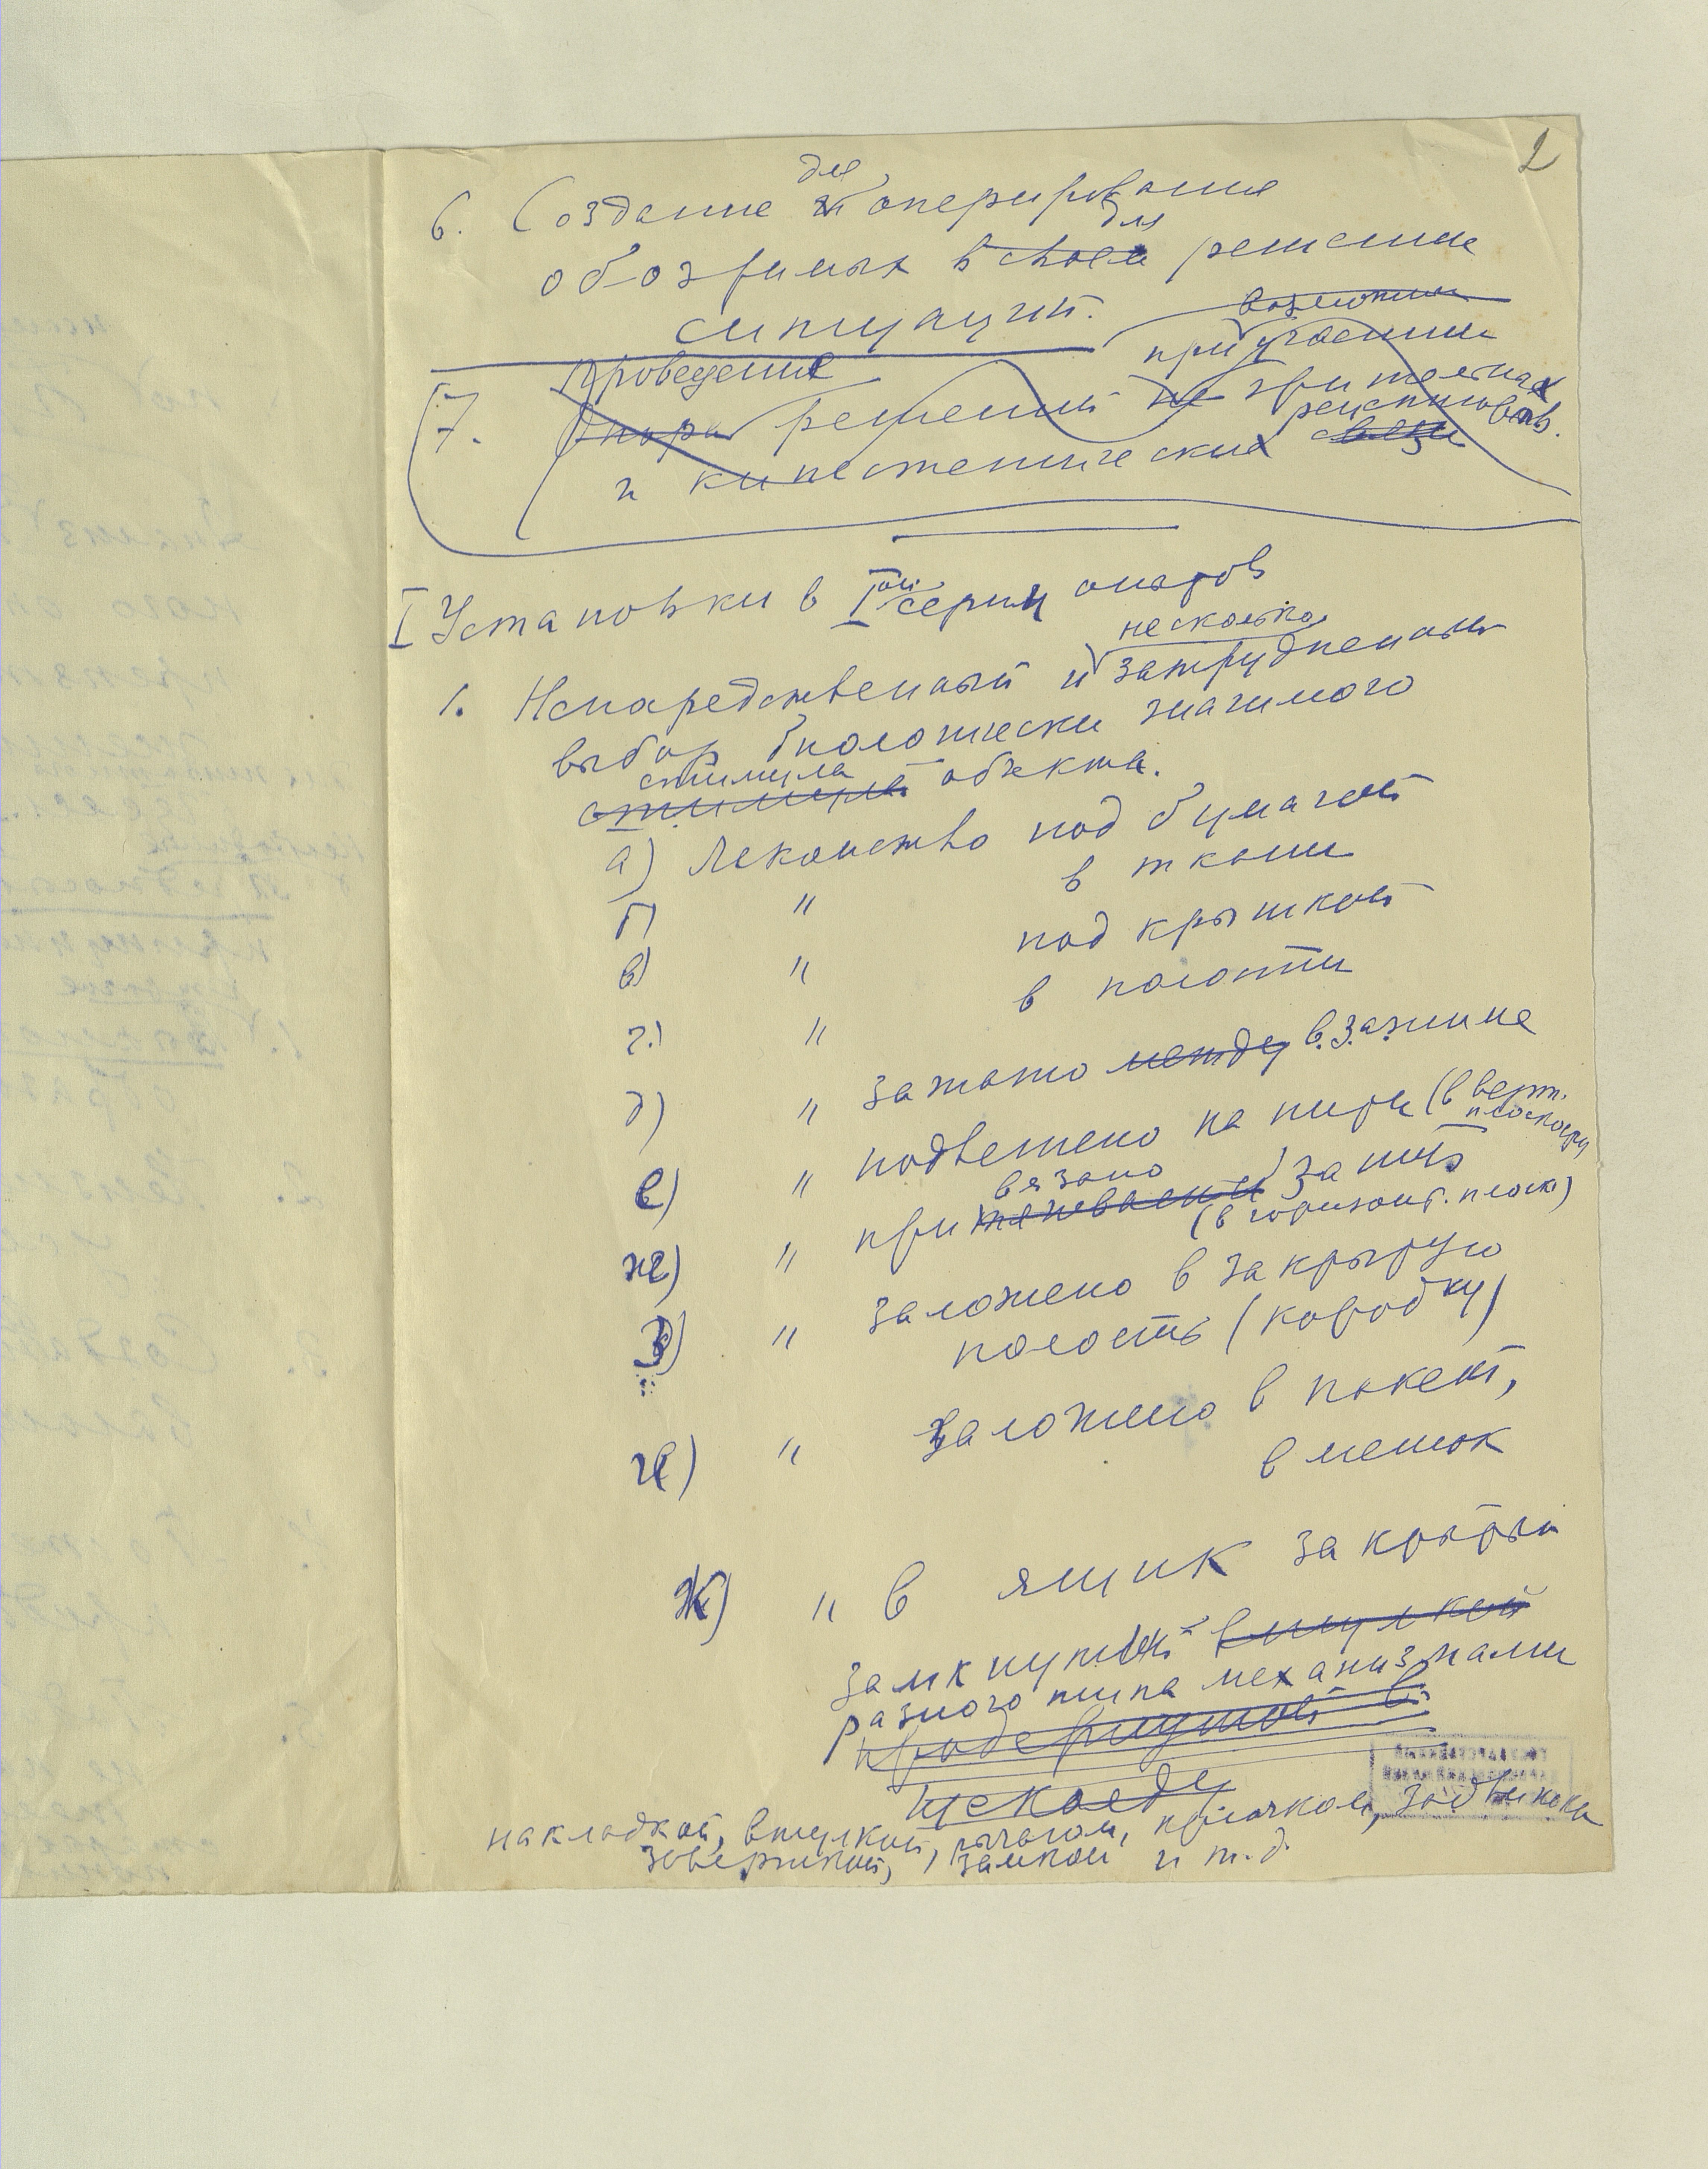 2
6. Создание для оперирования
обозримых в своем для решении
ситуаций.
возможном
7. Проведение решений не при участии зрительных
Опора рецепторов
и кинестетических связи
I Установки в Iой серии опытов
1. Непосредственный и несколько затрудненный
выбор биологически значимого
стимула
стимула объекта.
а) Лакомство под бумагой
б) " в ткани
в) " под крышкой
г.) " в полости
д) " зажато между в зажиме
е) " подвешено на нити (в верт. плоскости)
вязано
ж) " при за нить
(в горизонт. плоск)
з) " заложено в закрытую
полость (коробку)
и) " заложено в пакет,
в мешок
К) " в ящик закрытый
замкнутый втулкой
разного типа механизмами
продернутой в
щеколду
накладкой, втулкой, рычагом, крючком, задвижкой
заверткой, замком и т.д.